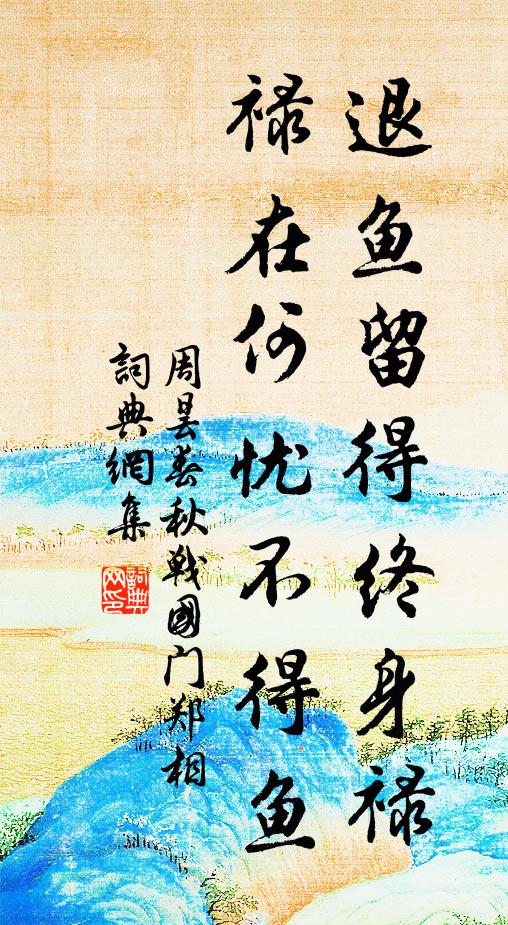 退鱼留得终身禄
禄在何忧不得鱼
周昙春秋戦國门郑相
詞典網集
詞典
网印